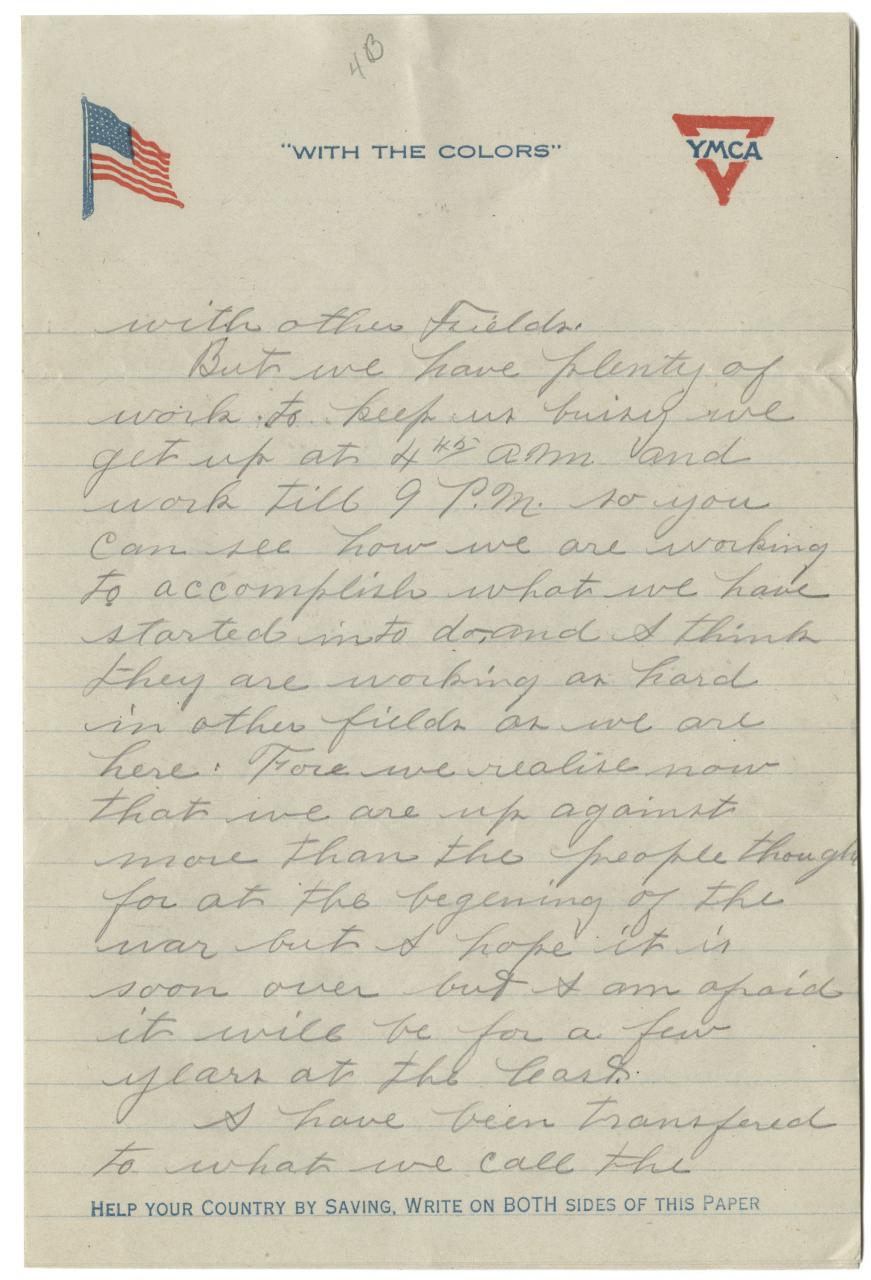 4B
"WITH THE COLORS"
YMCA
with other Fields.
But we have plenty of
work to keep us buisy we
get up at 4 45 a.m. and
work till 9 P.M. so you
can see how we are working
to accomplish what we have
started in to do, and I think
they are working as hard
in other fields as we are
here. Fore we realise now
that we are up against
more than the people though
for at the begening of the
war but I hope it is
soon over but I am afraid
it will be for a few
years at the least.
I have been transfered
to what we call the
HELP YOUR COUNTRY BY SAVING, WRITE ON BOTH SIDES OF THIS PAPER